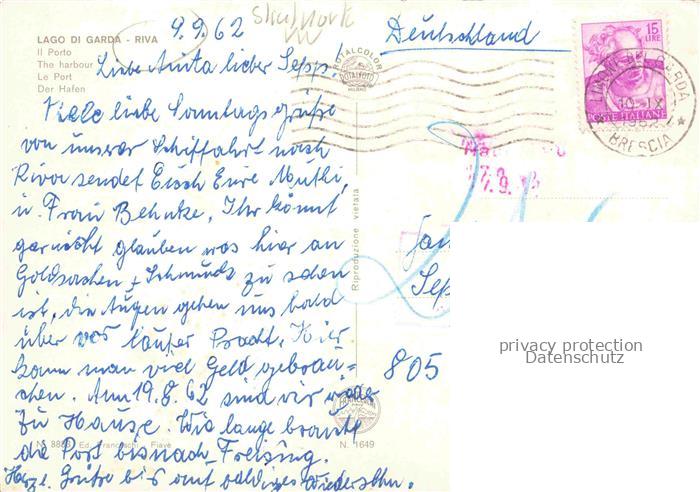 LAGO DI GARDA - RIVA
Il Porto
The harbour
Le Port
Der Hafen
9.9.62
Deutschland
ROTALCOLOR
ROTALFOTO
MILANO
15
LIRE
POSTE ITALIANE
LIMONE DEL GARDA
10. IX
1962
BRESCIA
Liebe Anita lieber Sepp!
Viele liebe Sonntagsgrüße
von unserer Schiffahrt nach
Riva sendet Euch Eure Mutti,
u. Frau Behnke, Ihr könnt
gar nicht glauben was hier an
Goldsachen + Schmuck zu sehen
ist, die Augen gehen uns bald
über vor lauter Pracht, Hier
kann man viel Geld gebrau=
chen. Am 19.8.62 sind wir wieder
zu Hause. Wie lange braucht
die Post bis nach Freising.
Herzl. Grüße bis auf baldiges Wiedersehn.
Riproduzione vietata
Fam
Sep
805
privacy protection
Datenschutz
Ed. Franceschi - Fiavè
N. 1649